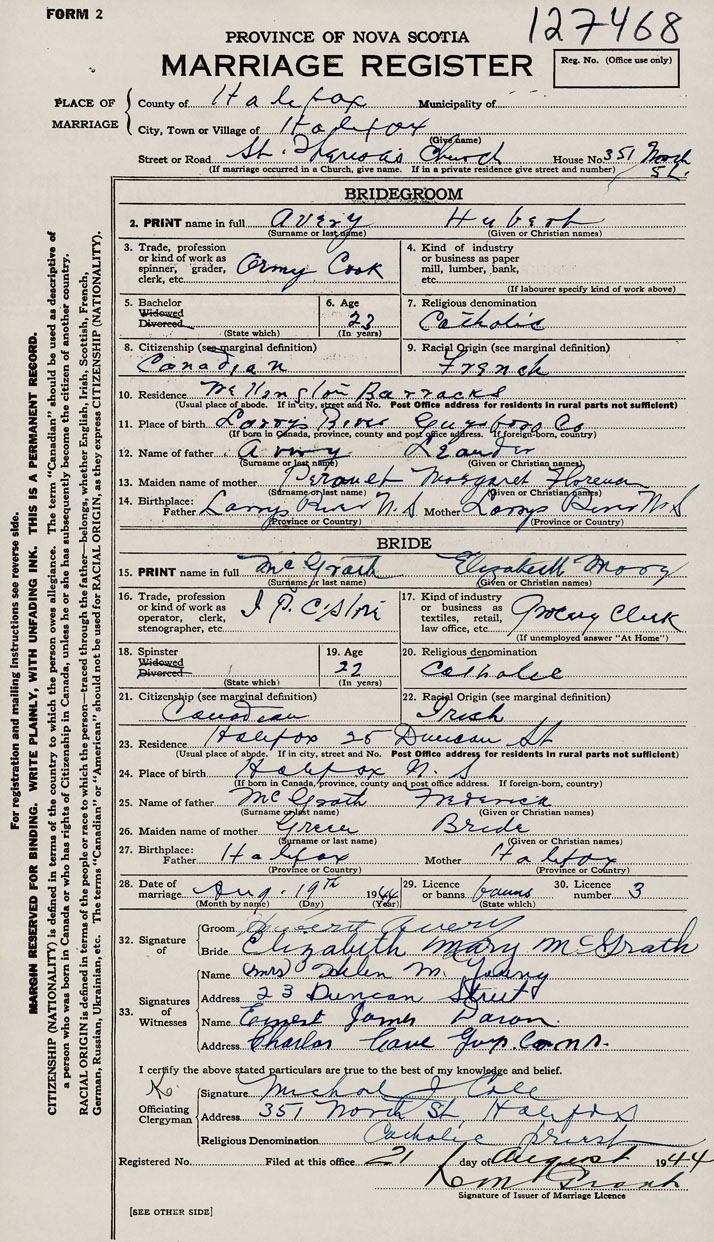 FORM 2
127468
PROVINCE OF NOVA SCOTIA
MARRIAGE REGISTER
Reg. No. (Office use only)
PLACE OF MARRIAGE
County of Halifax Municipality of
City, Town or Village of Halifax
(Give name)
Street or Road St. Theresa's Church House No 351 North St.
(If marriage occurred in a Church, give name. If in a private residence give street and number)
BRIDEGROOM
2. PRINT name in full Avery Hubert
(Surname or last name) (Given or Christian names)
3. Trade, profession or kind of work as spinner, grader, clerk, etc. Army Cook
4. Kind of industry or business as paper mill, lumber, bank, etc.
(If labourer specify kind of work above)
5. Bachelor Widowed Divorced
(State which)
6. Age 23
(In years)
7. Religious denomination
Catholic
8. Citizenship (see marginal definition)
Canadian
9. Racial Origin (see marginal definition)
French
10. Residence Barracks
(Usual place of abode. If in city, street and No. Post Office address for residents in rural parts not sufficient)
11. Place of birth Larrys River Guysboro Co
(If born in Canada, province, county and post office address. If foreign-born, country)
12. Name of father Avery Leander
(Surname or last name) (Given or Christian names)
13. Maiden name of mother Margaret Florence
(Surname or last name) (Given or Christian names)
14. Birthplace: Father Larrys River N.S Mother Larrys River N.S
(Province or Country) (Province or Country)
BRIDE
15. PRINT name in full McGrath Elizabeth Mary
(Surname or last name) (Given or Christian names)
16. Trade, profession or kind of work as operator, clerk, stenographer, etc.
17. Kind of industry or business as textiles, retail, law office, etc. Grocery Clerk
(If unemployed answer "At Home")
18. Spinster Widowed Divorced
(State which)
19. Age 22
(In years)
20. Religious denomination
Catholic
21. Citizenship (see marginal definition)
Canadian
22. Racial Origin (see marginal definition)
Irish
23. Residence Halifax 25 Duncan St
(Usual place of abode. If in city, street and No. Post Office address for residents in rural parts not sufficient)
24. Place of birth Halifax N.S
(If born in Canada, province, county and post office address. If foreign-born, country)
25. Name of father McGrath Frederick
(Surname or last name) (Given or Christian names)
26. Maiden name of mother Bride
(Surname or last name) (Given or Christian names)
27. Birthplace: Father Halifax Mother Halifax
(Province or Country) (Province or Country)
28. Date of marriage Aug. 19th 1944
(Month by name) (Day) (Year)
29. Licence or banns banns
(State which)
30. Licence number 3
32. Signature of
Groom Hubert Avery
Bride Elizabeth Mary McGrath
33. Signatures of Witnesses
Name (Mrs) Helen M. Young
Address 23 Duncan Street
Name Ernest James
Address Charlos Cove Guy. Co. N.S.
I certify the above stated particulars are true to the best of my knowledge and belief.
Officiating Clergyman
Signature Michael J Cole
Address 351 North St Halifax
Religious Denomination Catholic priest
Registered No. Filed at this office 21 day of August 1944
Signature of Issuer of Marriage Licence
[SEE OTHER SIDE]
For registration and mailing instructions see reverse side.
MARGIN RESERVED FOR BINDING. WRITE PLAINLY, WITH UNFADING INK. THIS IS A PERMANENT RECORD.
CITIZENSHIP (NATIONALITY) is defined in terms of the country to which the person owes allegiance. The term "Canadian" should be used as descriptive of
a person who was born in Canada or who has rights of Citizenship in Canada, unless he or she has subsequently become the citizen of another country.
RACIAL ORIGIN is defined in terms of the people or race to which the person—traced through the father—belongs, whether English, Irish, Scottish, French,
German, Russian, Ukrainian, etc. The terms "Canadian" or "American" should not be used for RACIAL ORIGIN, as they express CITIZENSHIP (NATIONALITY).